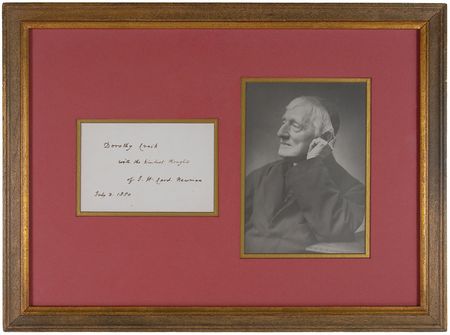 Dorothy
with the kindest thoughts
of J. H. Card. Newman
July 2. 1880